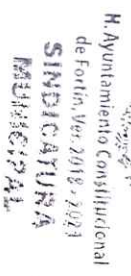 H. Ayuntamiento Constitucional
de Fortín, Ver. 2018 - 2021
SINDICATURA
MUNICIPAL